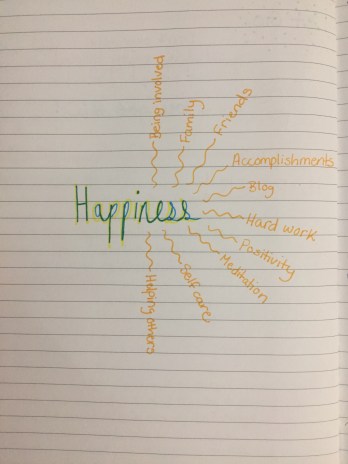 Being involved
Family
Friends
Accomplishments
Blog
Happiness
Hard work
Positivity
Meditation
Self care
Helping others